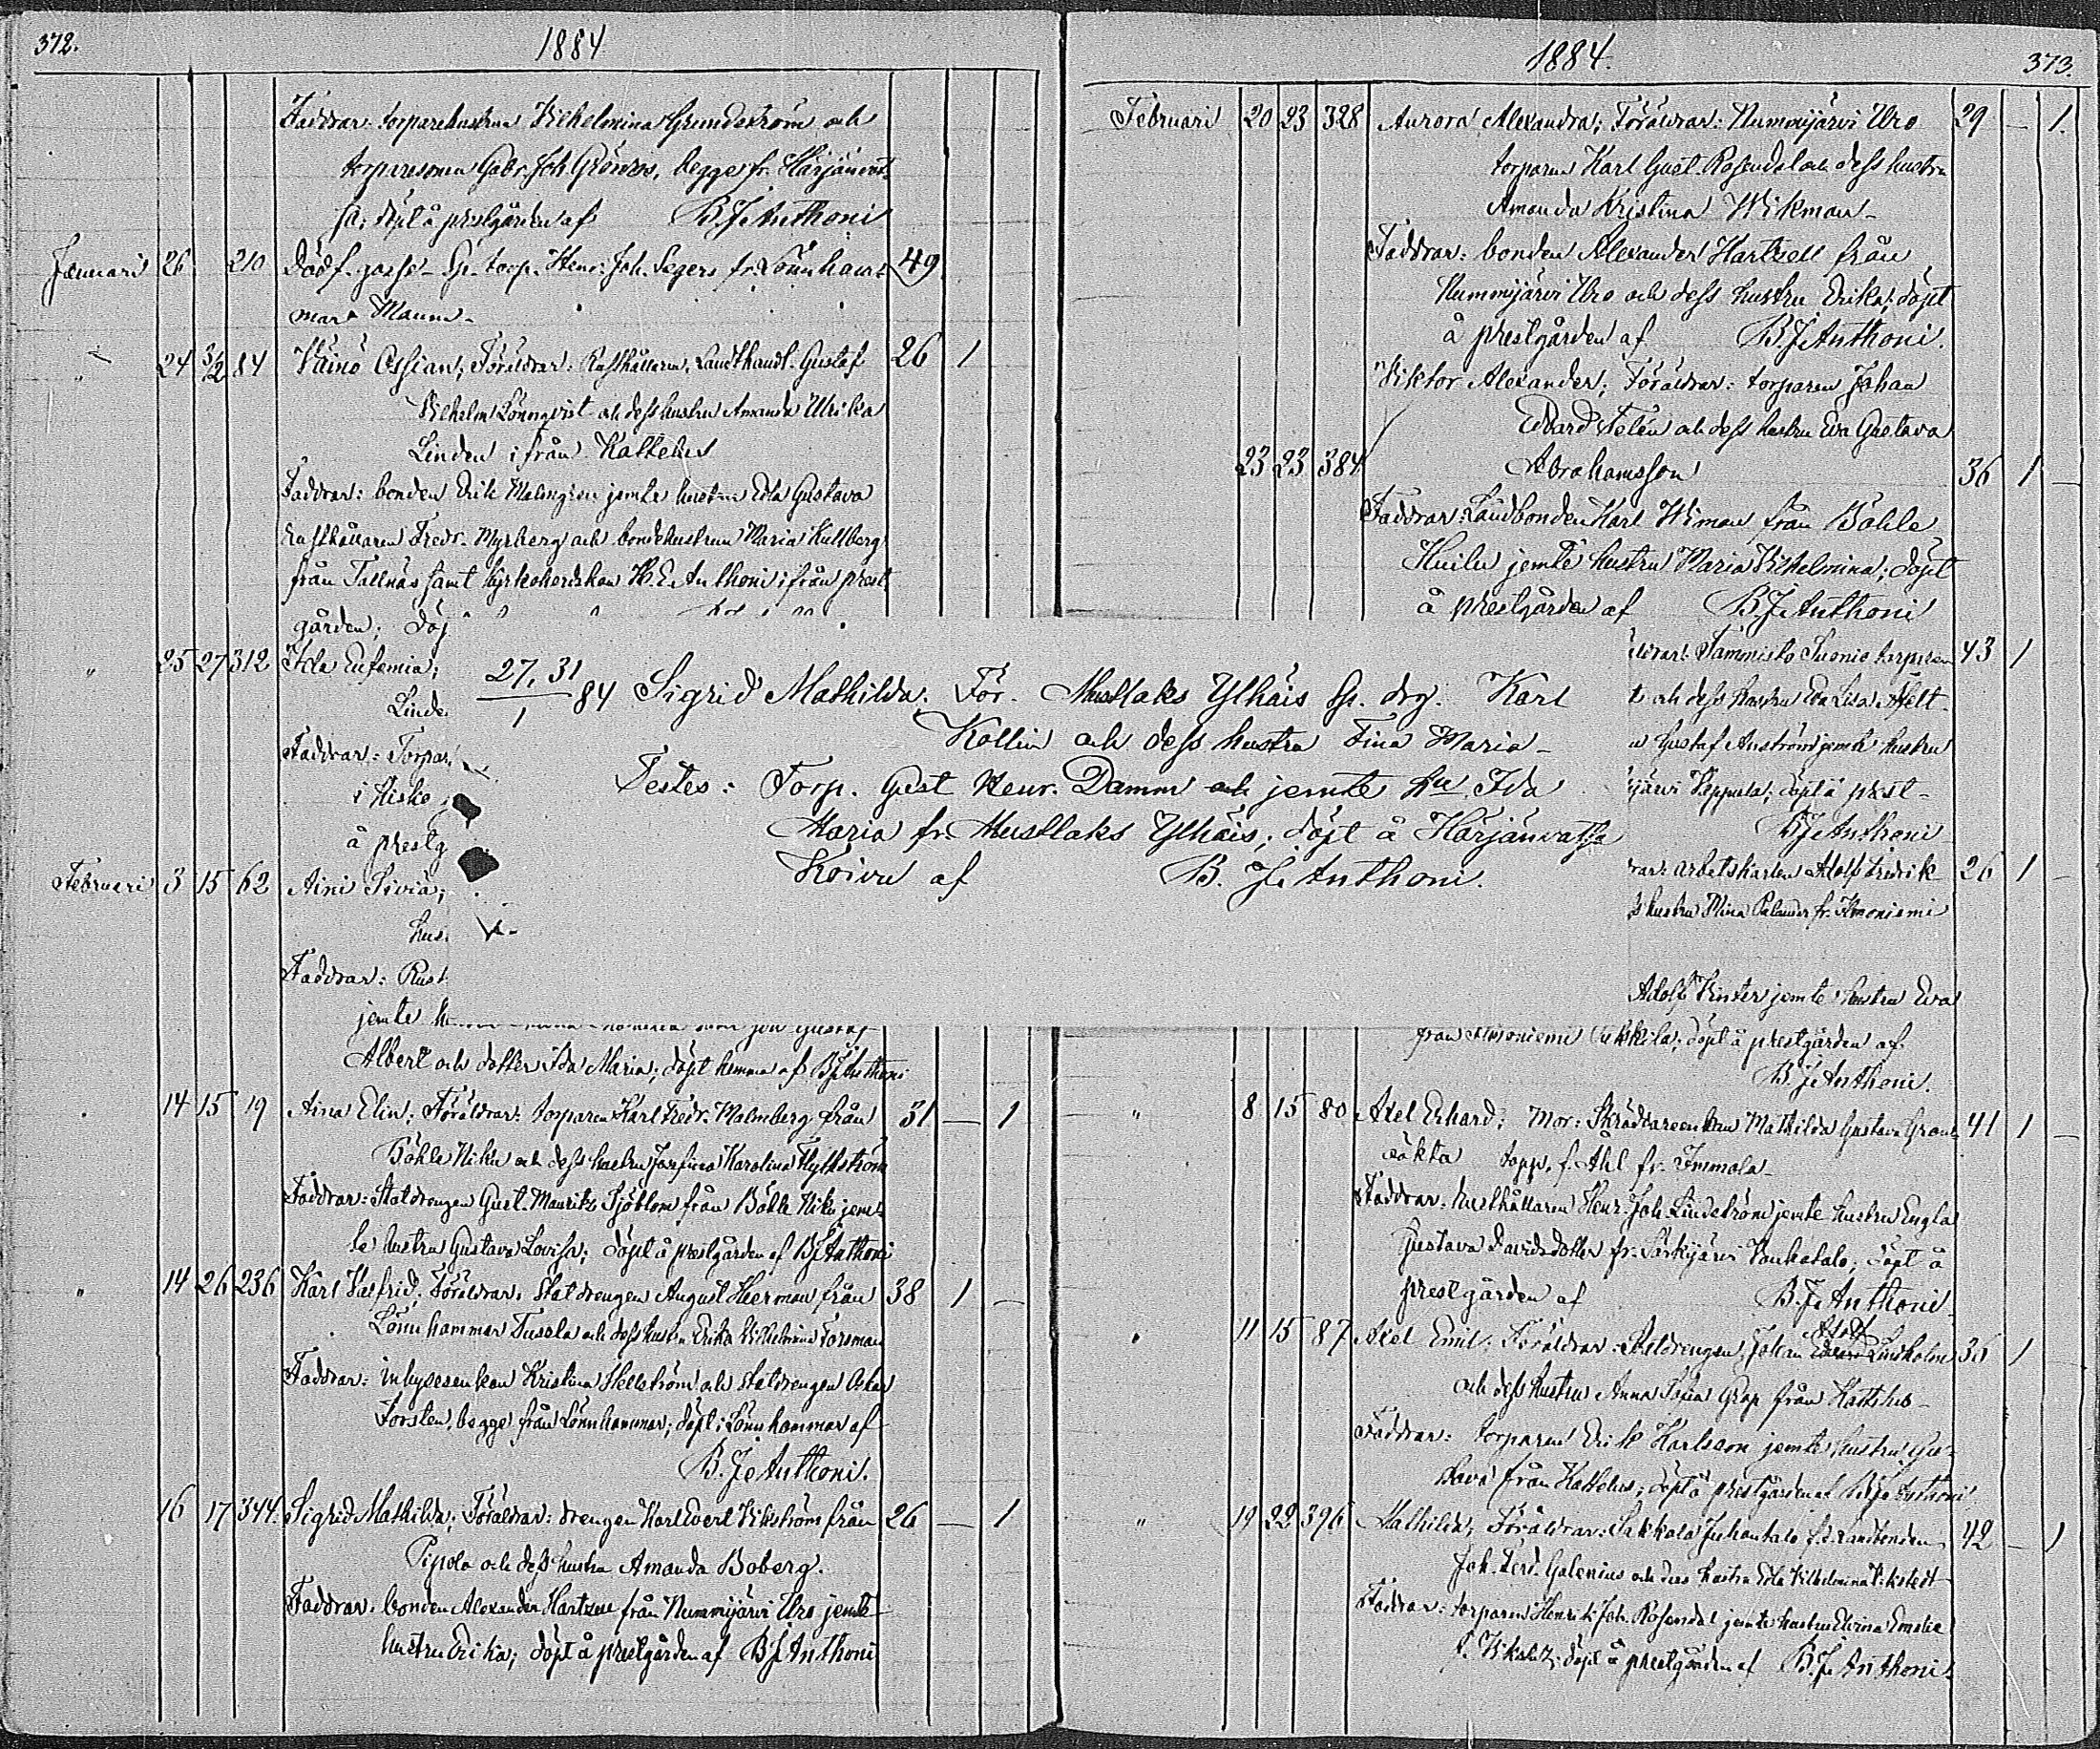 372.
1884
Faddrar: torparehustrun Vilhelmina Grundström och
torparesonen Gabr. Joh. begge fr. Härjänvat-
sa; döpt å prestgården af B. J. Anthoni
Januari 26 210 Dödf. gosse Sp. torp. Henr. Joh. Segers fr. Lönnham- 49
mar Maum
" 24 3/2 84 Väinö Ossian; Föräldrar: Rusthållaren, Landthandl. Gustaf 26 1
Vilhelm Lönnqvist och dess hustru Amanda Ulrika
Linden ifrån Kattelus
Faddrar: bonden Erik Malmgren jemte hustrun Eda Gustava
Rusthållaren Fredr. Myrberg och bondehustrun Maria Kullberg
från Tallnäs samt kyrkoherdskan H. E. Anthoni ifrån prest-
gården; döp
" 25 27 312 Ida Eufemia;
Linde
Faddrar: Torpar
i Hiske
å prestg
Februari 3 15 62 Aini Sivia;
hus
Faddrar: Rust
jemte
Albert och dotter Ida Maria; döpt hemma af B J Anthoni
14 15 19 Aina Elin; Föräldrar: torparen Karl Fredr. Malmberg från 31 — 1
Böhle Niku och dess hustru Josefina Karolina Flythström
Faddrar: Statdrengen Gust. Mauritz Sjöblom från Böhle Niku jem-
te hustru Gustava Lovisa; döpt å prestgården af B J Anthoni
" 14 26 236 Karl Valfrid; Föräldrar: Statdrengen August Herman från 38 1 —
Lönnhammar Tussla och dess hustru Erika Vilhelmina Forsman
Faddrar: inhysesenkan Kristina Hellström och statdrengen Oskar
Forsten, begge från Lönnhammar; döpt i Lönnhammar af
B. J. Anthoni.
16 17 344 Sigrid Mathilda; Föräldrar: drengen Karl Evert Vikström från 26 — 1
Pipola och dess hustru Amanda Boberg.
Faddrar: bonden Alexander Hartzell från Nummijärvi Uro jemte
hustru Erika; döpt å prestgården af B J Anthoni
27, 31
1 84 Sigrid Mathilda; För. Mustlaks Ylhäis Sp. drg. Karl
Kollin och dess hustru Fina Maria
Testes: Torp. Gust Henr. Damm och jemte hu Ida
Maria fr. Mustlaks Ylhäis; döpt å Härjänvatsa
Koivu af B. J. Anthoni.
1884.
373.
Februari 20 23 328 Aurora Alexandra; Föräldrar: Nummijärvi Uro 29 — 1.
torparen Karl Gust. Rosendal och dess hustru
Amanda Kristina Wikman
Faddrar: bonden Alexander Hartzell från
Nummijärvi Uro och dess hustru Erika; döpt
å prestgården af B. J. Anthoni.
Viktor Alexander; Föräldrar: torparen Johan
Edvard Felén och dess hustru Eva Gustava
23 23 384 Abrahamsson 36 1 —
Faddrar: Landbonden Karl Wiman från Böhle
Huilu jemte hustru Maria Vilhelmina; döpt
å prestgården af B. J. Anthoni
ldrar: Sammisto Suonio torparen 43 1
t och dess hustru Eva Lisa Afelt
n Gustaf Anström jemte hustru
ijärvi Seppala; döpt å prest-
B J Anthoni
rar: arbetskarlen Adolf Fredrik 26 1 —
s hustru Mina Palander fr. Immoniemi
Adolf Vinter jemte hustru Eva
från Immoniemi Uukkila; döpt å prestgården af
B. J. Anthoni.
" 8 15 80 Axel Erhard; Mor: Skräddareenkan Mathilda Gustava Gran- 41 1 —
oäkta topp. f. Ahl fr. Immola
Faddrar: husthållaren Henr. Joh. Lindström jemte hustru Engla
Gustava Davidsdotter fr. Särkijärvi Vanhatalo; döpt å
prestgården af B. J. Anthoni
" 11 15 87 Axel Emil; Föräldrar: Statdrengen Johan Edvard Lindholm 36 1
Adolf
och dess hustru Anna Sofia Grop från Kattelus
Faddrar: torparen Erik Karlsson jemte hustru Gu-
stava från Kattelus; döpt å prestgården af B. J. Anthoni
" 19 22 396 Mathilda; Föräldrar: Sakkola Juhantalo f.d. Landbonden 42 — 1
Joh. Ferd. Galenius och dess hustru Eda Vilhelmina Vikstedt
Faddrar: torparen Henrik Joh. Rosendal jemte hustru Elvina Emelie
f. döpt å prestgården af B. J. Anthoni.